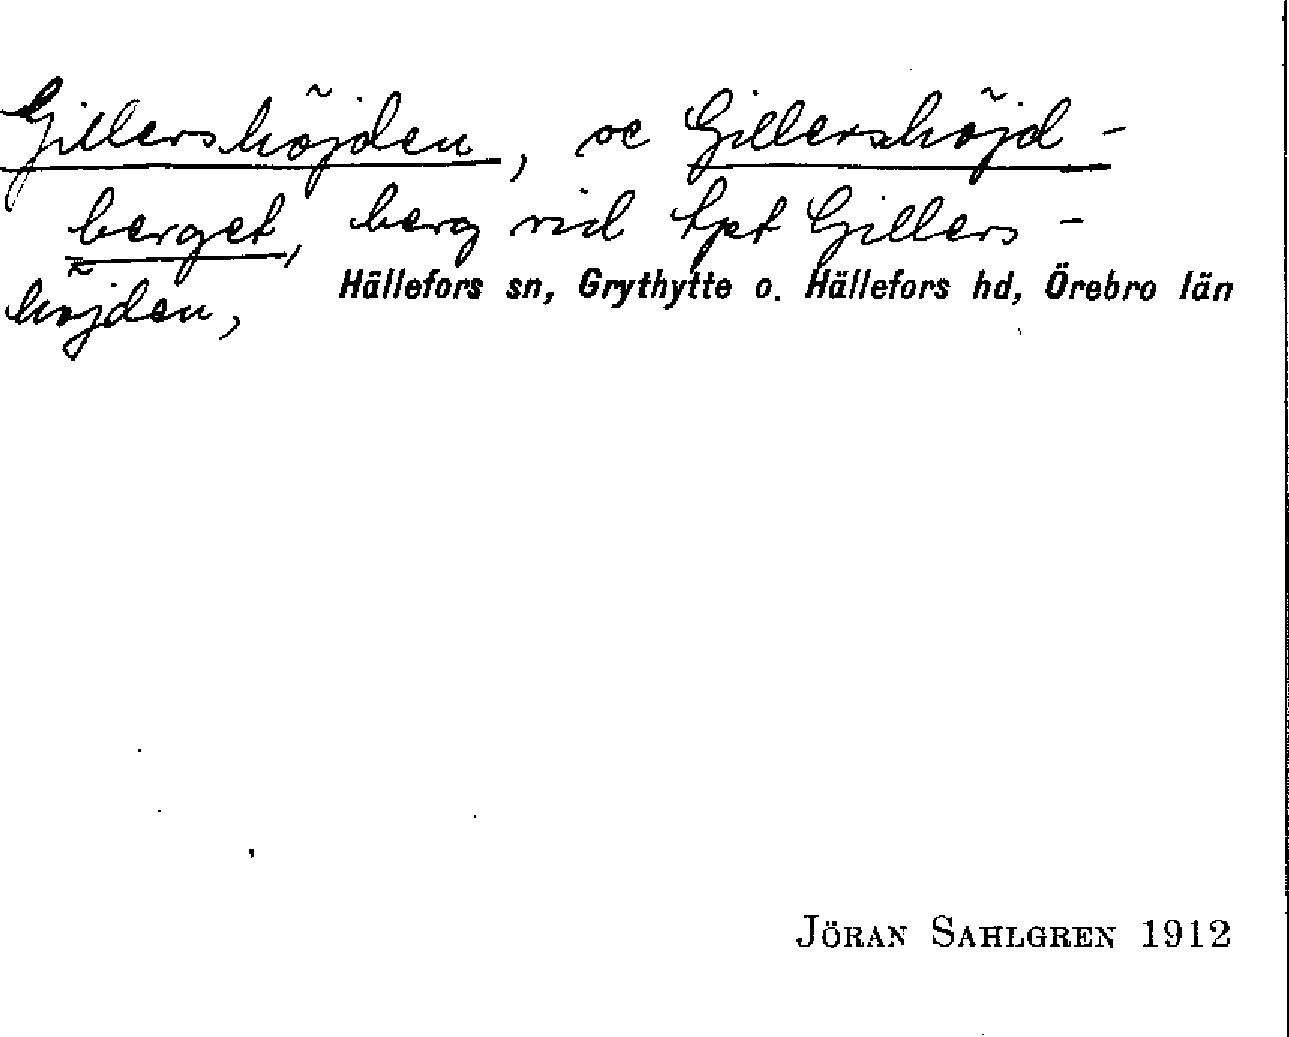 Gillershöjden, se Gillershöjd-
berget, berg vid tpt Gillers-
höjden, Hällefors sn, Grythytte o. Hällefors hd, Örebro län
JÖRAN SAHLGREN 1912